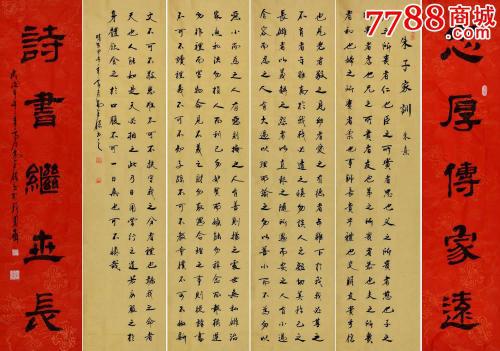 7788商城
忠厚傳家遠
朱子家訓 朱熹
之所貴者仁也臣之所貴者忠也父之所貴者慈也子之
所貴者孝也兄之所貴者友也弟之所貴者恭也夫之所貴
者和也婦之所貴者柔也事師長貴乎禮也交朋友貴乎信
也見老者敬之見幼者愛之有德者年雖下於我我必尊之
不肖者年雖高於我我必遠之慎勿談人之短切莫矜己之
長仇者以義解之怨者以直報之隨所遇而安之人有小過
含容而忍之人有大過以理而諭之勿以善小而不為勿以
惡小而為之人有惡則掩之人有善則揚之處世無私仇治
家無私法勿損人而利己勿妒賢而嫉能勿稱忿而報橫逆
勿非禮而害物命見不義之財勿取遇合理之事則從詩書
不可不讀禮義不可不知子孫不可不教童僕不可不恤斯
文不可不敬患難不可不扶守我之分者禮也聽我之命者
天也人能如是天必相之此乃日用常行之道若衣服之於
身體飲食之於口腹不可一日無也可不慎哉
詩書繼世長